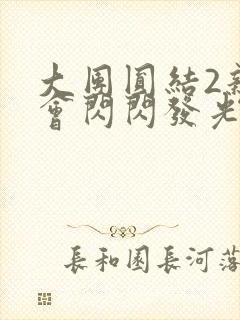 大團圓結2
會閃閃發光
長和園長河落